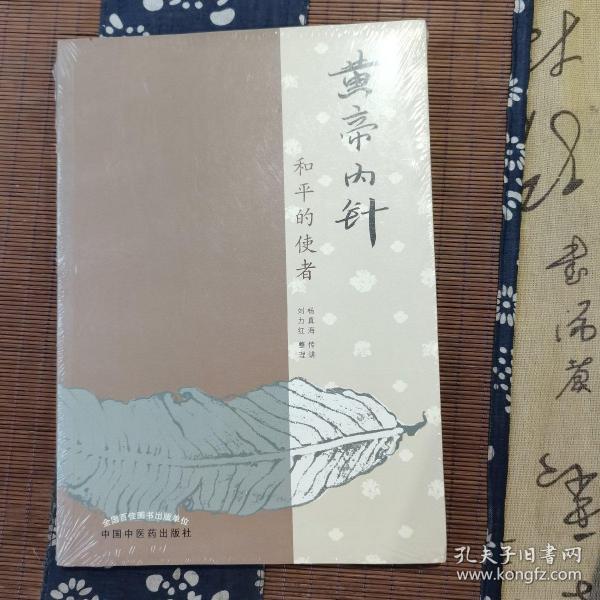 黄帝内针
和平的使者
杨真海 传讲
刘力红 整理
全国百佳图书出版单位
中国中医药出版社
书沥黄
孔夫子旧书网
www.kongfz.com